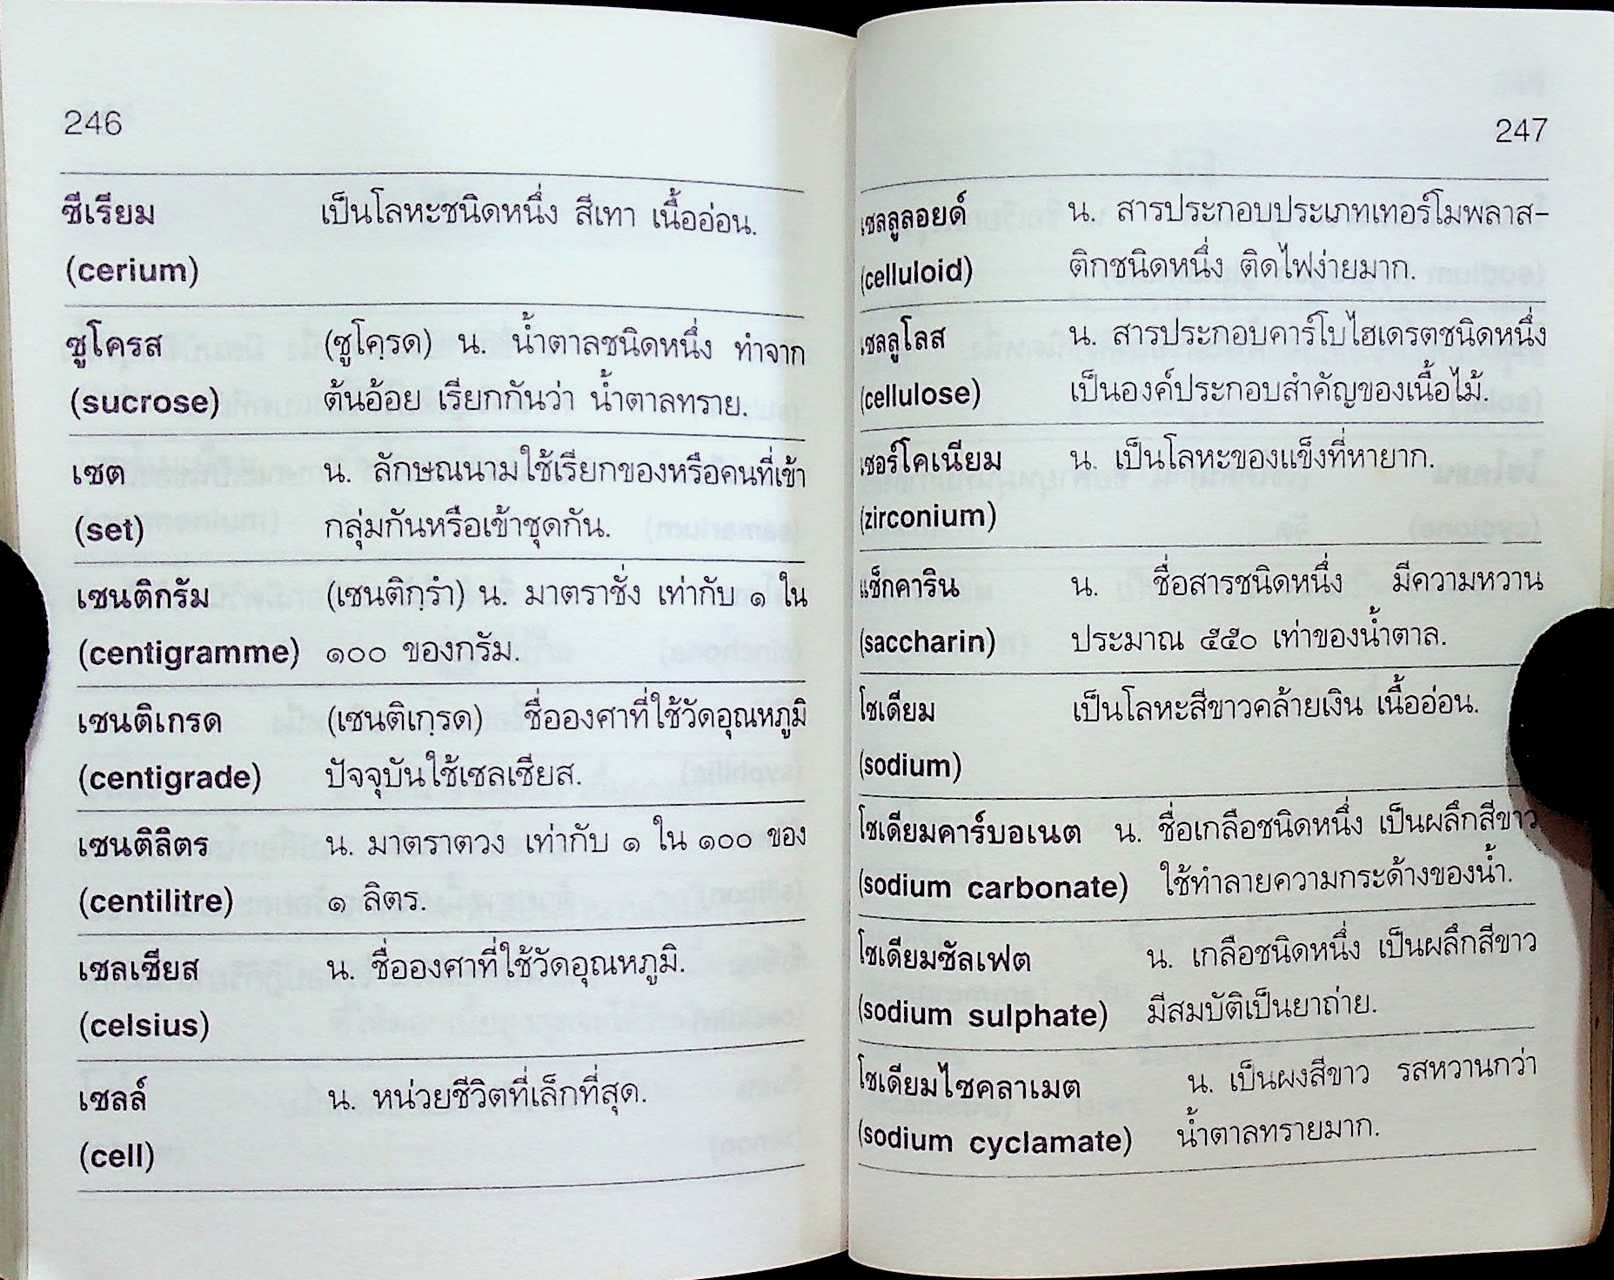 246
ซีเรียม เป็นโลหะชนิดหนึ่ง สีเทา เนื้ออ่อน.
(cerium)
ซูโครส (ซูโคฺรด) น. น้ำตาลชนิดหนึ่ง ทำจาก
(sucrose) ต้นอ้อย เรียกกันว่า น้ำตาลทราย.
เซต น. ลักษณนามใช้เรียกของหรือคนที่เข้า
(set) กลุ่มกันหรือเข้าชุดกัน.
เซนติกรัม (เซนติกฺรำ) น. มาตราชั่ง เท่ากับ ๑ ใน
(centigramme) ๑๐๐ ของกรัม.
เซนติเกรด (เซนติเกฺรด) ชื่อองศาที่ใช้วัดอุณหภูมิ
(centigrade) ปัจจุบันใช้เซลเซียส.
เซนติลิตร น. มาตราตวง เท่ากับ ๑ ใน ๑๐๐ ของ
(centilitre) ๑ ลิตร.
เซลเซียส น. ชื่อองศาที่ใช้วัดอุณหภูมิ.
(celsius)
เซลล์ น. หน่วยชีวิตที่เล็กที่สุด.
(cell)
247
เซลลูลอยด์ น. สารประกอบประเภทเทอร์โมพลาส-
(celluloid) ติกชนิดหนึ่ง ติดไฟง่ายมาก.
เซลลูโลส น. สารประกอบคาร์โบไฮเดรตชนิดหนึ่ง
(cellulose) เป็นองค์ประกอบสำคัญของเนื้อไม้.
เซอร์โคเนียม น. เป็นโลหะของแข็งที่หายาก.
(zirconium)
แซ็กคาริน น. ชื่อสารชนิดหนึ่ง มีความหวาน
(saccharin) ประมาณ ๕๕๐ เท่าของน้ำตาล.
โซเดียม เป็นโลหะสีขาวคล้ายเงิน เนื้ออ่อน.
(sodium)
โซเดียมคาร์บอเนต น. ชื่อเกลือชนิดหนึ่ง เป็นผลึกสีขาว
(sodium carbonate) ใช้ทำลายความกระด้างของน้ำ.
โซเดียมซัลเฟต น. เกลือชนิดหนึ่ง เป็นผลึกสีขาว
(sodium sulphate) มีสมบัติเป็นยาถ่าย.
โซเดียมไซคลาเมต น. เป็นผงสีขาว รสหวานกว่า
(sodium cyclamate) น้ำตาลทรายมาก.